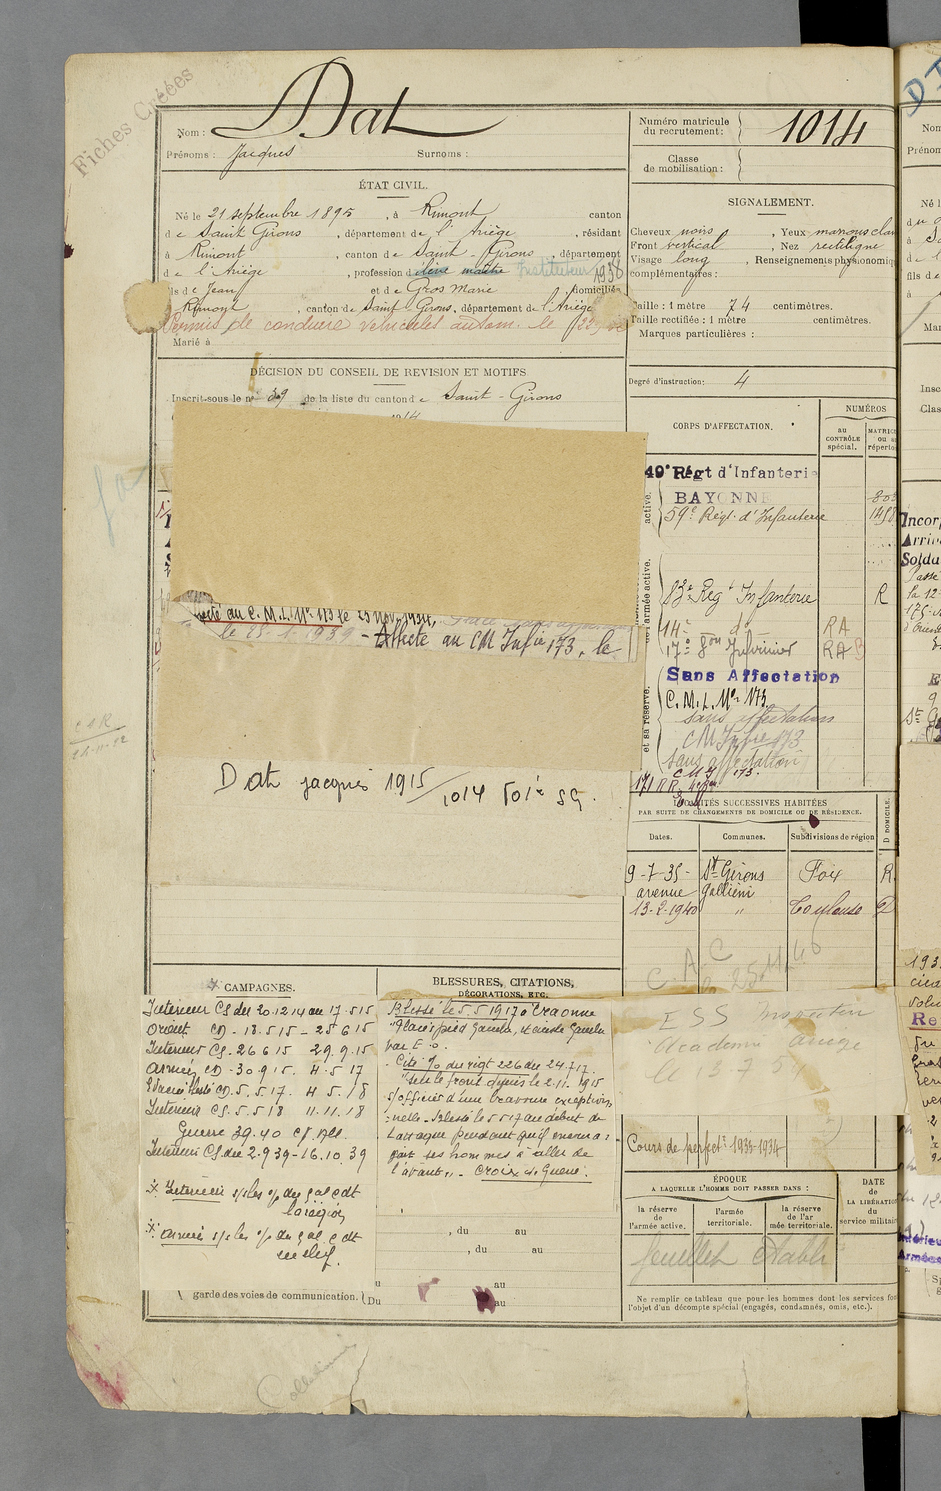 Fiches Créées
Nom : Dat
Prénoms : Jacques Surnoms :
Numéro matricule du recrutement : 1014
Classe de mobilisation :
ÉTAT CIVIL.
Né le 21 septembre 1895, à Rimont canton
de Saint Girons, département de l'Ariège, résidant
à Rimont, canton de Saint-Girons, département
de l'Ariège, profession d'élève maître Instituteur 1938
fils de Jean et de Gros Marie domiciliés
Rimont, canton de Saint Girons, département de l'Ariège
Permis de conduire véhicules autom. le
Marié à
SIGNALEMENT.
Cheveux noirs, Yeux marrons clair
Front vertical, Nez rectiligne
Visage long, Renseignements physionomiq
complémentaires :
Taille : 1 mètre 74 centimètres.
Taille rectifiée : 1 mètre centimètres.
Marques particulières :
Degré d'instruction : 4
DÉCISION DU CONSEIL DE REVISION ET MOTIFS
Inscrit sous le n° 39 de la liste du canton de Saint-Girons
CORPS D'AFFECTATION.
NUMÉROS
au CONTRÔLE spécial.
MATRIC ou a réperto
49e Régt d'Infanterie
BAYONNE
59e Régt d'Infanterie
83e Rég t Infanterie R
14e do RA
17e RA
Sans Affectation
C.M.I. No 173
sans affectation
CM Infie 173
sans affectation
CMI 173.
active.
de l'armée active.
et sa réserve.
Affecté au C.M.I. No 173 le 25 Nov. 1934,
le 25-1-1939 - Affecté au CM Infie 173, le
Dat jacques 1915/1014 Foix SG.
LOCALITÉS SUCCESSIVES HABITÉES
PAR SUITE DE CHANGEMENTS DE DOMICILE OU DE RÉSIDENCE.
Dates. Communes. Subdivisions de région D DOMICILE.
9-7-35- St Girons Foix R
avenue Galliéni
13-2-1940 " Toulouse D
ESS Inspecteur
Académie Ariège
Cours de perfect t 1933-1934
CAMPAGNES.
Intérieur CS du 20.12.14 au 17.5.15
Orient CD - 18.5.15 - 25.6.15
Intérieur CS - 26.6.15 29.9.15
Armées CD - 30.9.15. 4.5.17
Evacué blessé CD. 5.5.17. 4.5.18
Intérieur CS. 5.5.18 11.11.18
Guerre 39.40 Cf. All.
Intérieur CS. du 2.9.39-16.10.39
BLESSURES, CITATIONS,
DÉCORATIONS, ETC.
Blessé le 5.5.1917 à Craonne
"Plaies pied gauche, et cuisse gauche
par E.o.
Cité %o du régt 226 du 24.7.17.
"sur le front depuis le 2.11.1915
s/officier d'une bravoure exception
:nelle. Blessé le 5.5.17 au début de
l'attaque pendant qu'il encoura:
geait ses hommes à aller de
l'avant". - Croix de Guerre.
, du au
, du au
au
Du au
garde des voies de communication.
ÉPOQUE
A LAQUELLE L'HOMME DOIT PASSER DANS :
la réserve de l'armée active.
l'armée territoriale.
la réserve de l'ar mée territoriale.
DATE de LA LIBÉRATION du service militair
feuillet établi
Ne remplir ce tableau que pour les hommes dont les services fo
l'objet d'un décompte spécial (engagés, condamnés, omis, etc.).